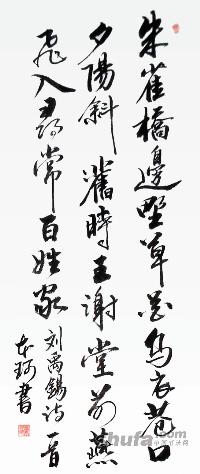 朱雀橋邊野草花烏衣巷口
夕陽斜舊時王謝堂前燕
飛入尋常百姓家
刘禹錫诗一首
書